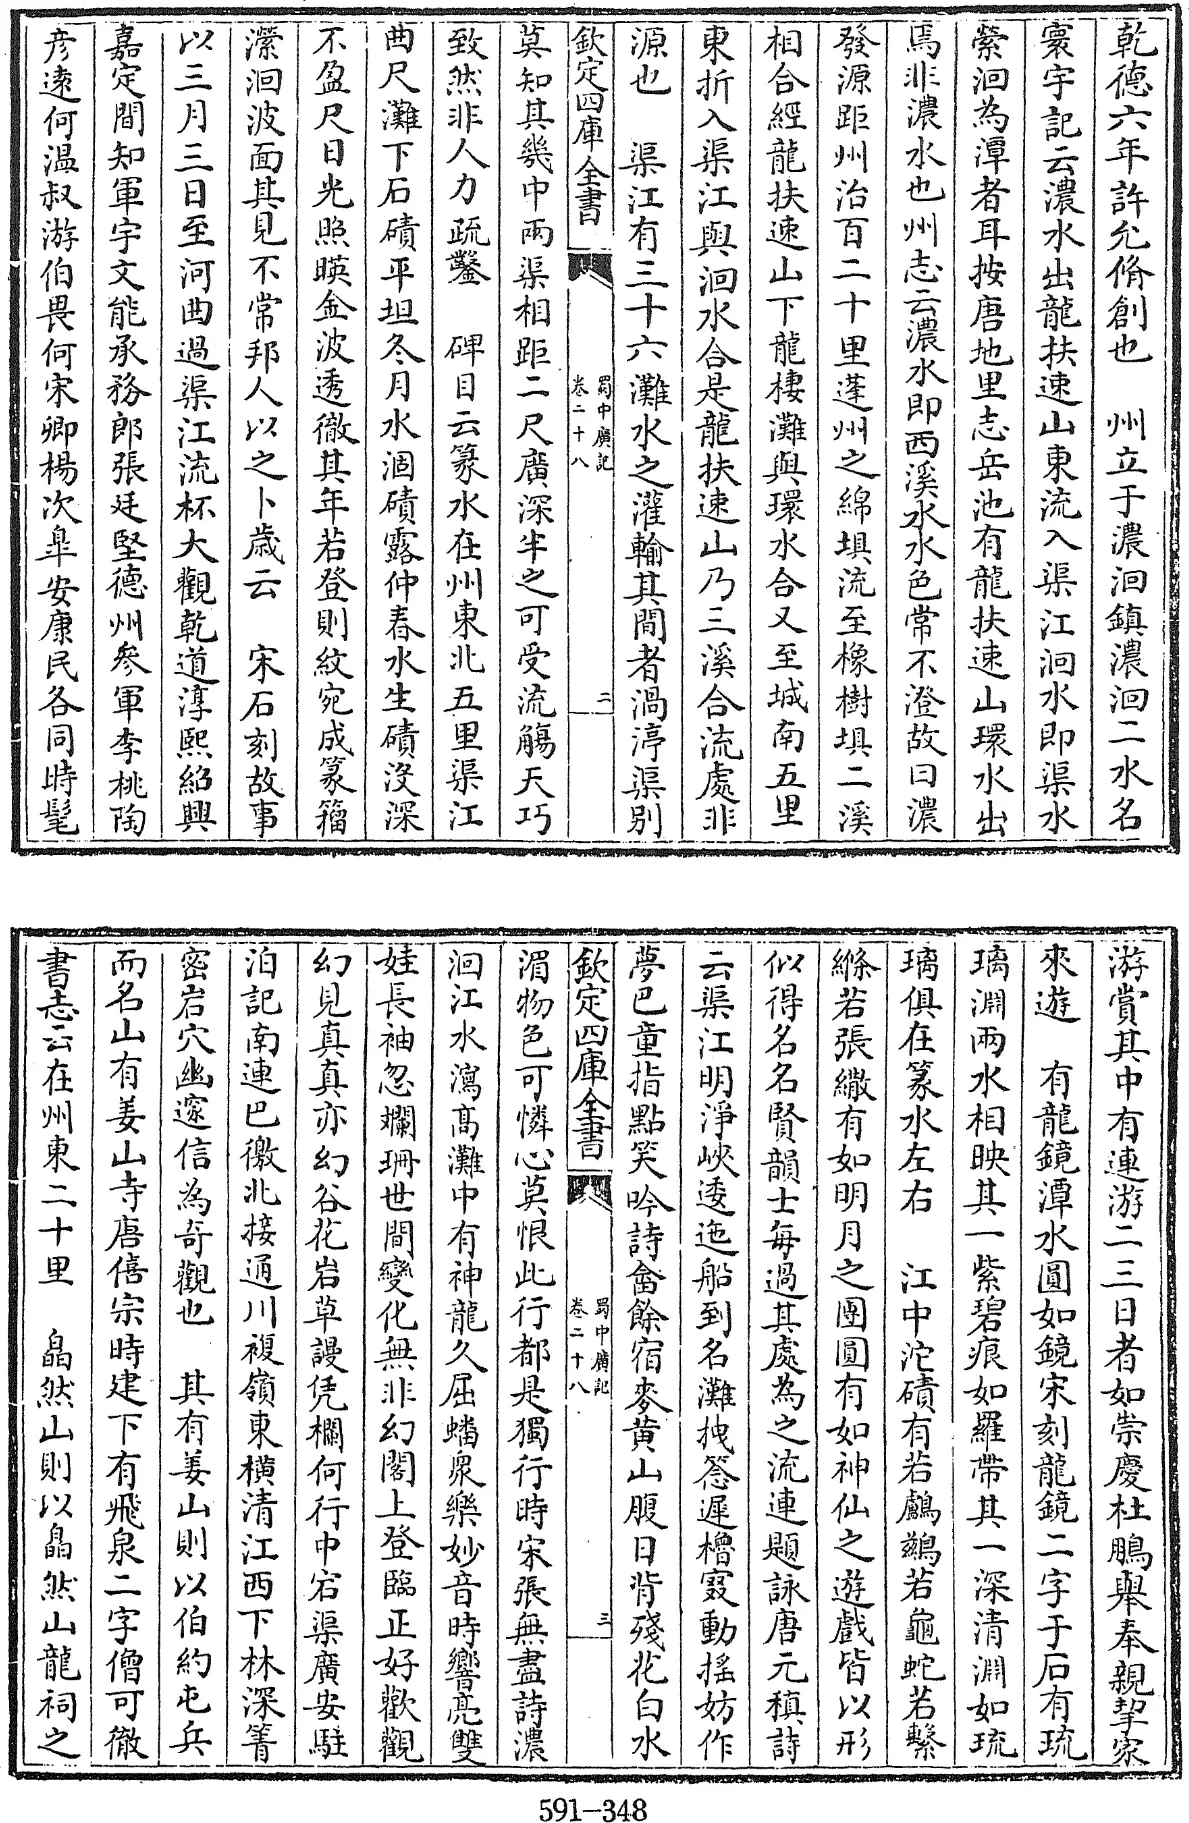 乾德六年許允脩創也　州立于濃洄鎮濃洄二水名
寰宇記云濃水出龍扶速山東流入渠江洄水即渠水
縈洄為潭者耳按唐地里志岳池有龍扶速山環水出
焉非濃水也州志云濃水即西溪水水色常不澄故曰濃
發源距州治百二十里蓬州之綿垻流至橡樹垻二溪
相合經龍扶速山下龍棲灘與環水合又至城南五里
東折入渠江與洄水合是龍扶速山乃三溪合流處非
源也　渠江有三十六灘水之灌輸其間者渦渟渠別
欽定四庫全書
蜀中廣記
卷二十八
二
莫知其幾中兩渠相距二尺廣深半之可受流觴天巧
致然非人力疏鑿　碑目云篆水在州東北五里渠江
曲尺灘下石磧平坦冬月水涸磧露仲春水生磧沒深
不盈尺日光照暎金波透徹其年若登則紋宛成篆籕
瀠洄波面其見不常邦人以之卜歲云　宋石刻故事
以三月三日至河曲過渠江流杯大觀乾道淳熙紹興
嘉定間知軍宇文能承務郎張廷堅德州叅軍李桃陶
彦遠何温叔游伯畏何宋卿楊次臯安康民各同時髦
游賞其中有連游二三日者如崇慶杜鵬舉奉親挈家
來遊　有龍鏡潭水圓如鏡宋刻龍鏡二字于石有琉
璃淵兩水相映其一紫碧痕如羅帶其一深清淵如琉
璃俱在篆水左右　江中沱磧有若鸕鷀若龜蛇若繫
絛若張繖有如明月之團圓有如神仙之遊戲皆以形
似得名名賢韻士每過其處為之流連題詠唐元稹詩
云渠江明淨峽逶迤船到名灘拽䇶遲櫓窡動搖妨作
夢巴童指點笑吟詩畬餘宿麥黄山腹日背殘花白水
欽定四庫全書
蜀中廣記
卷二十八
三
湄物色可憐心莫恨此行都是獨行時宋張無盡詩濃
洄江水瀉高灘中有神龍久屈蟠衆樂妙音時響亮雙
娃長袖忽斕珊世間變化無非幻閣上登臨正好歡觀
幻見真真亦幻谷花岩草謾凭欄何行中宕渠廣安駐
泊記南連巴徼北接通川複嶺東横清江西下林深箐
密岩穴幽邃信為奇觀也　其有姜山則以伯約屯兵
而名山有姜山寺唐僖宗時建下有飛泉二字僧可徹
書志云在州東二十里　皛然山則以皛然山龍祠之
591-348